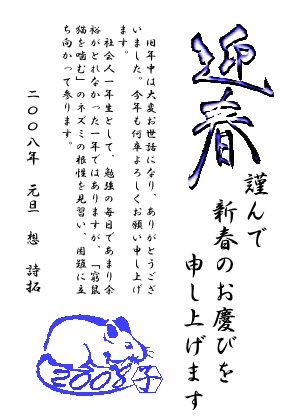 迎春
謹んで
新春のお慶びを
申し上げます
旧年中は大変お世話になり、ありがとうござ
いました。今年も何卒よろしくお願い申し上げ
ます。
社会人一年生として、勉強の毎日であり余
裕がとれなかった一年ではありますが、「窮鼠
猫を噛む」のネズミの根性を見習い、困難に立
ち向かって参ります。
二〇〇八年 元旦 想 詩拓
2008 子